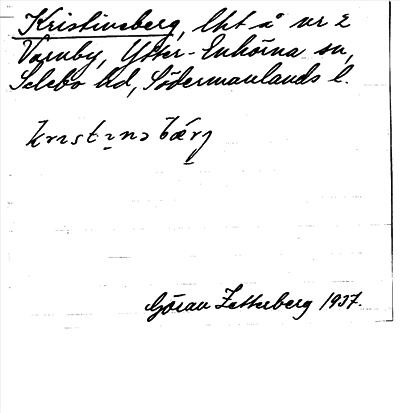 Kristineberg, lht å nr 2
Varnby, Ytter-Enhörna sn,
Selebo hd, Södermanlands l.
Göran Zetterberg 1937.